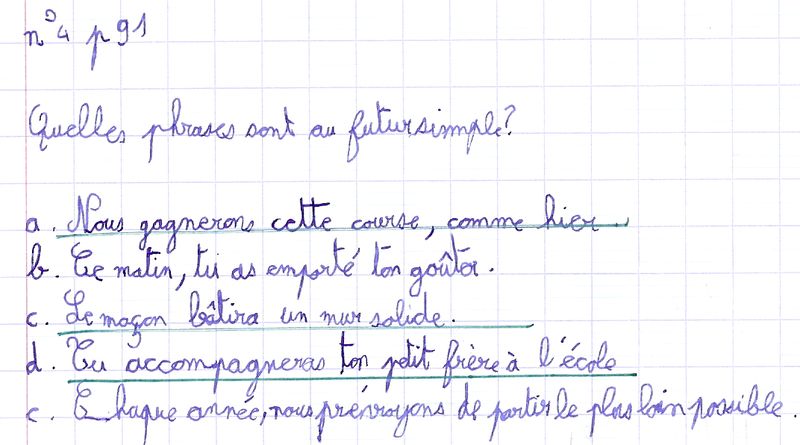 n°4 p 91
Quelles phrases sont au futur simple?
a. Nous gagnerons cette course, comme hier
b. Ce matin, tu as emporté ton goûter.
c. Le maçon bâtira un mur solide.
d. Tu accompagneras ton petit frère à l'école
e. Chaque année, nous prévoyons de partir le plus loin possible.